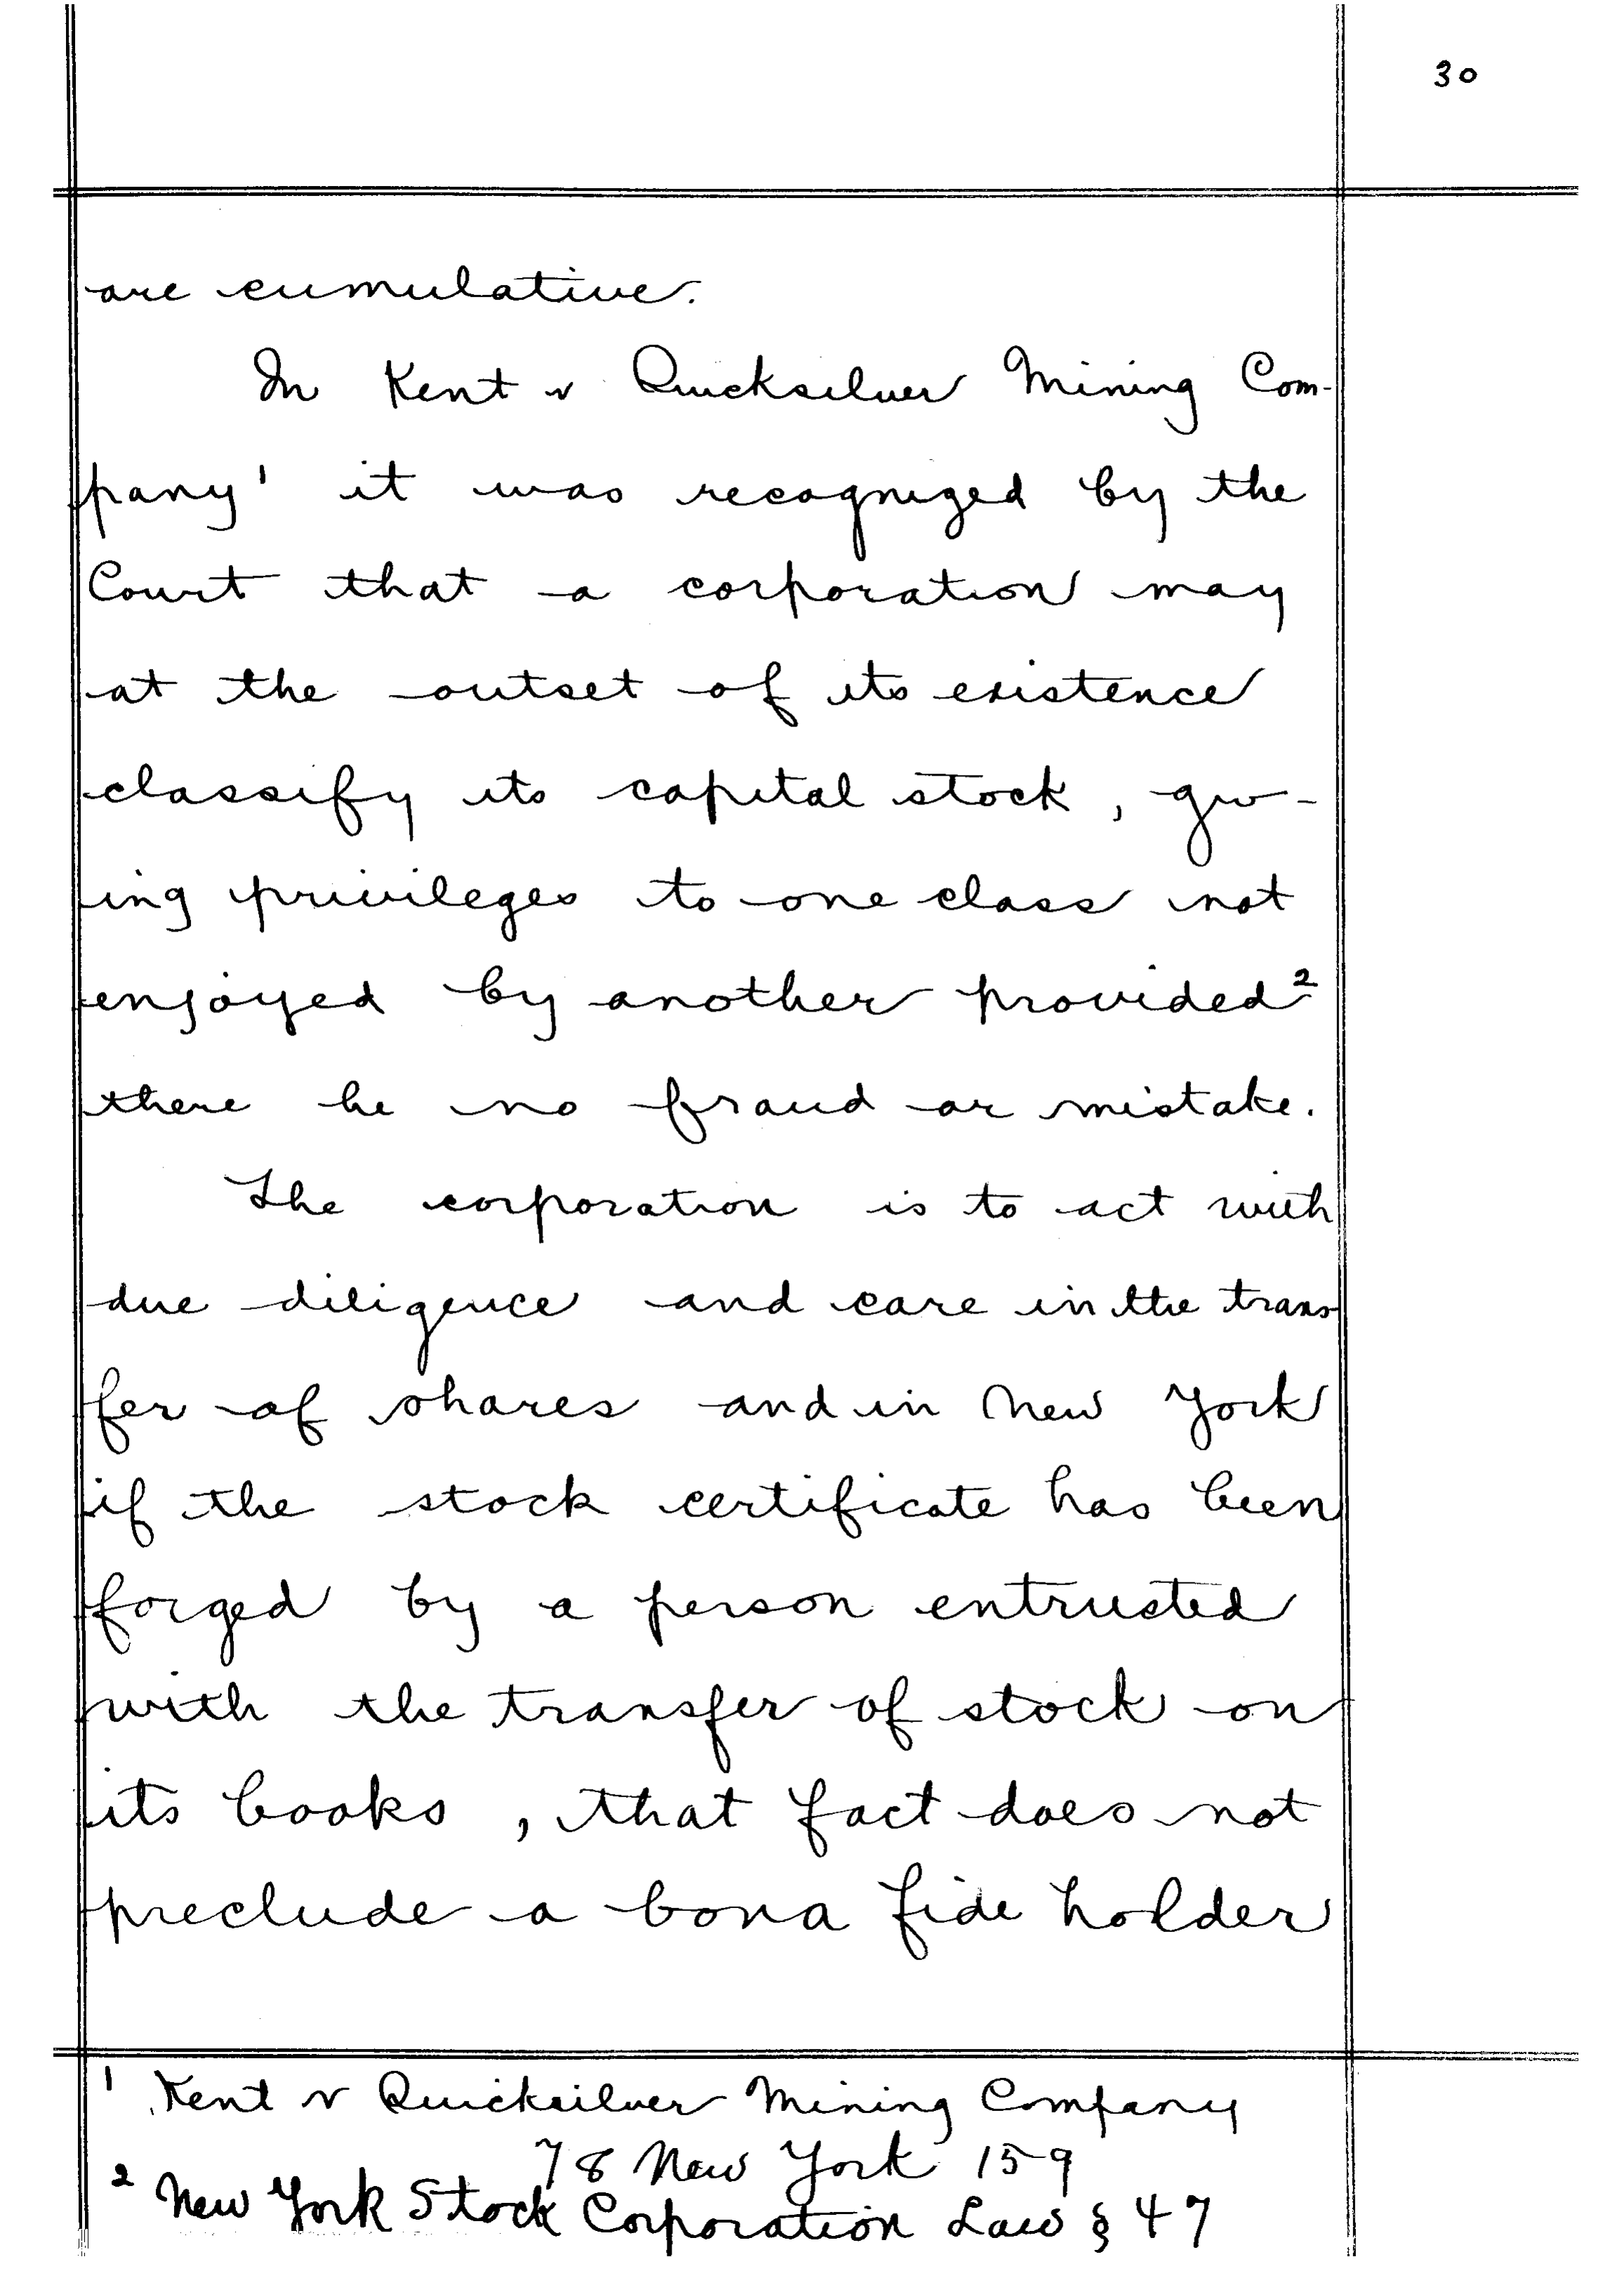 30
are cumulative.
In Kent v Quicksilver Mining Com-
pany¹ it was recognized by the
Court that a corporation may
at the outset of its existence
classify its capital stock, giv-
ing privileges to one class not
enjoyed by another provided²
there be no fraud or mistake.
The corporation is to act with
due diligence and care in the trans-
fer of shares and in New York
if the stock certificate has been
forged by a person entrusted
with the transfer of stock on
its books, that fact does not
preclude a bona fide holder
¹ Kent v Quicksilver Mining Company
78 New York 159
² New York Stock Corporation Law § 47